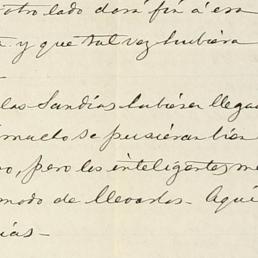 otro lado dará fin á esa
y que tal vez hubiera
las Sandías hubiesen llegado
se pusieran bien
pero los inteligentes me
modo de llevarlos - Aquí